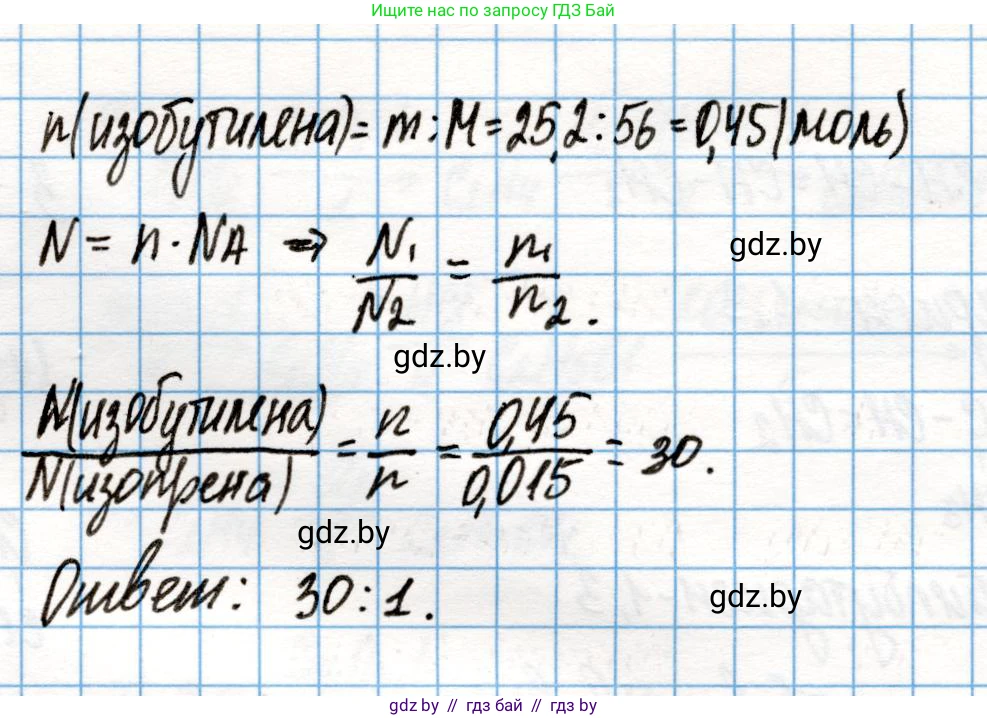 Ищите нас по запросу ГДЗ Бай
n(изобутилена) = m : M = 25,2 : 56 = 0,45 (моль)
N = n · NA ⇒ N1/N2 = n1/n2.
gdz.by
gdz.by
N(изобутилена)/N(изопрена) = n/n = 0,45/0,015 = 30.
gdz.by
Ответ: 30 : 1.
gdz.by
gdz.by // гдз бай // gdz.by